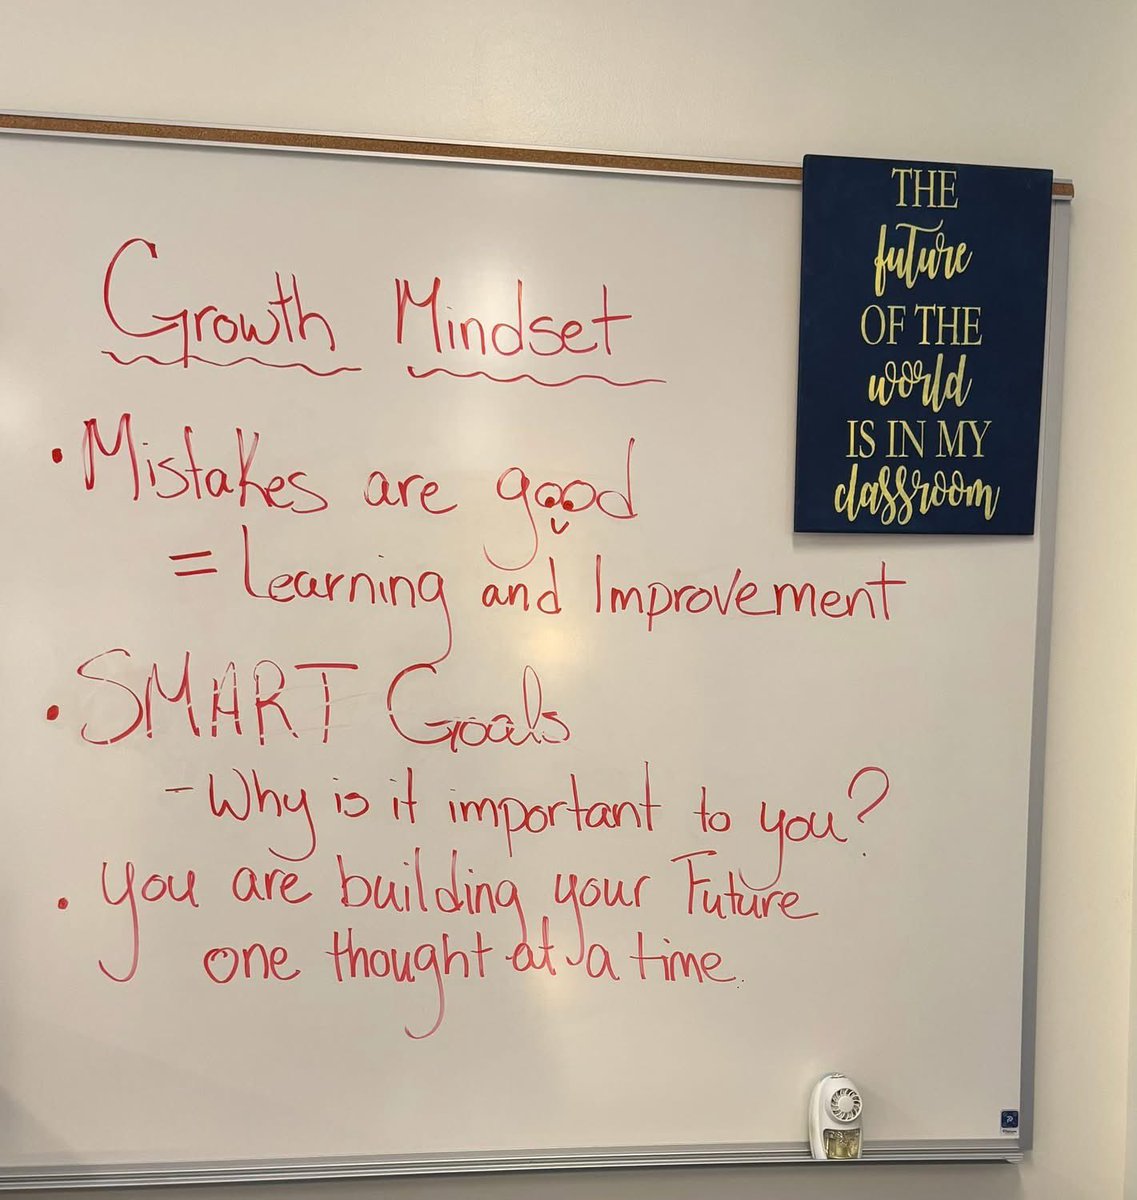 Growth Mindset
• Mistakes are good
= Learning and Improvement
• SMART Goals
- Why is it important to you?
• You are building your Future
one thought at a time.
THE
future
OF THE
world
IS IN MY
classroom